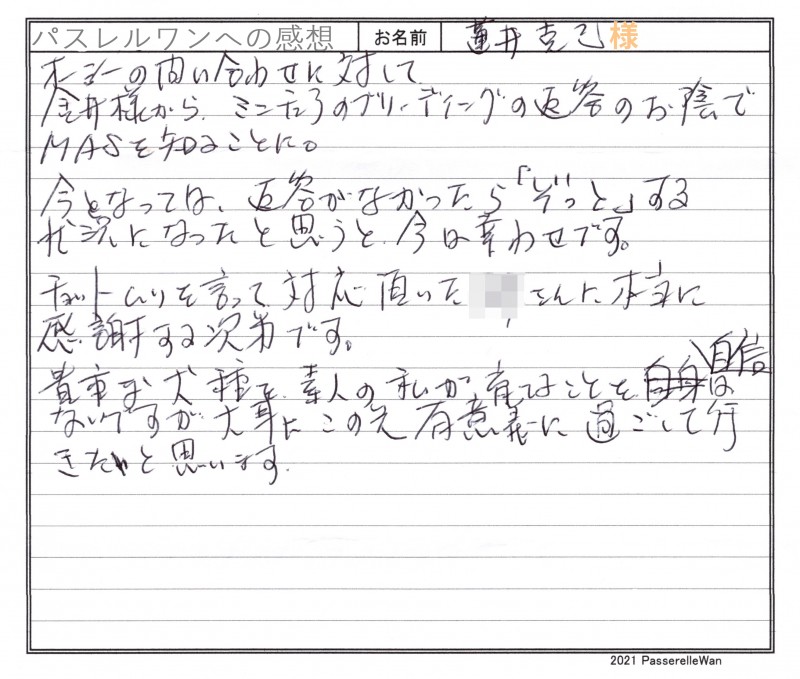 パスレルワンへの感想 お名前 蓮井克己様
ホショーの問い合わせに対して
金井様から、ミニチュアのブリーディングの返答のお陰で
MASを知ることに。
今となっては、返答がなかったら「ぞっと」する
状況になったと思うと、今は幸わせです。
チョットムリを言って、対応頂いた さんに、本当に
感謝する次第です。
貴重な犬種を、素人の私が、育てることを 自信は
ないですが、大事に この先 有意義に 過ごして行
きたいと思います。
2021 PasserelleWan